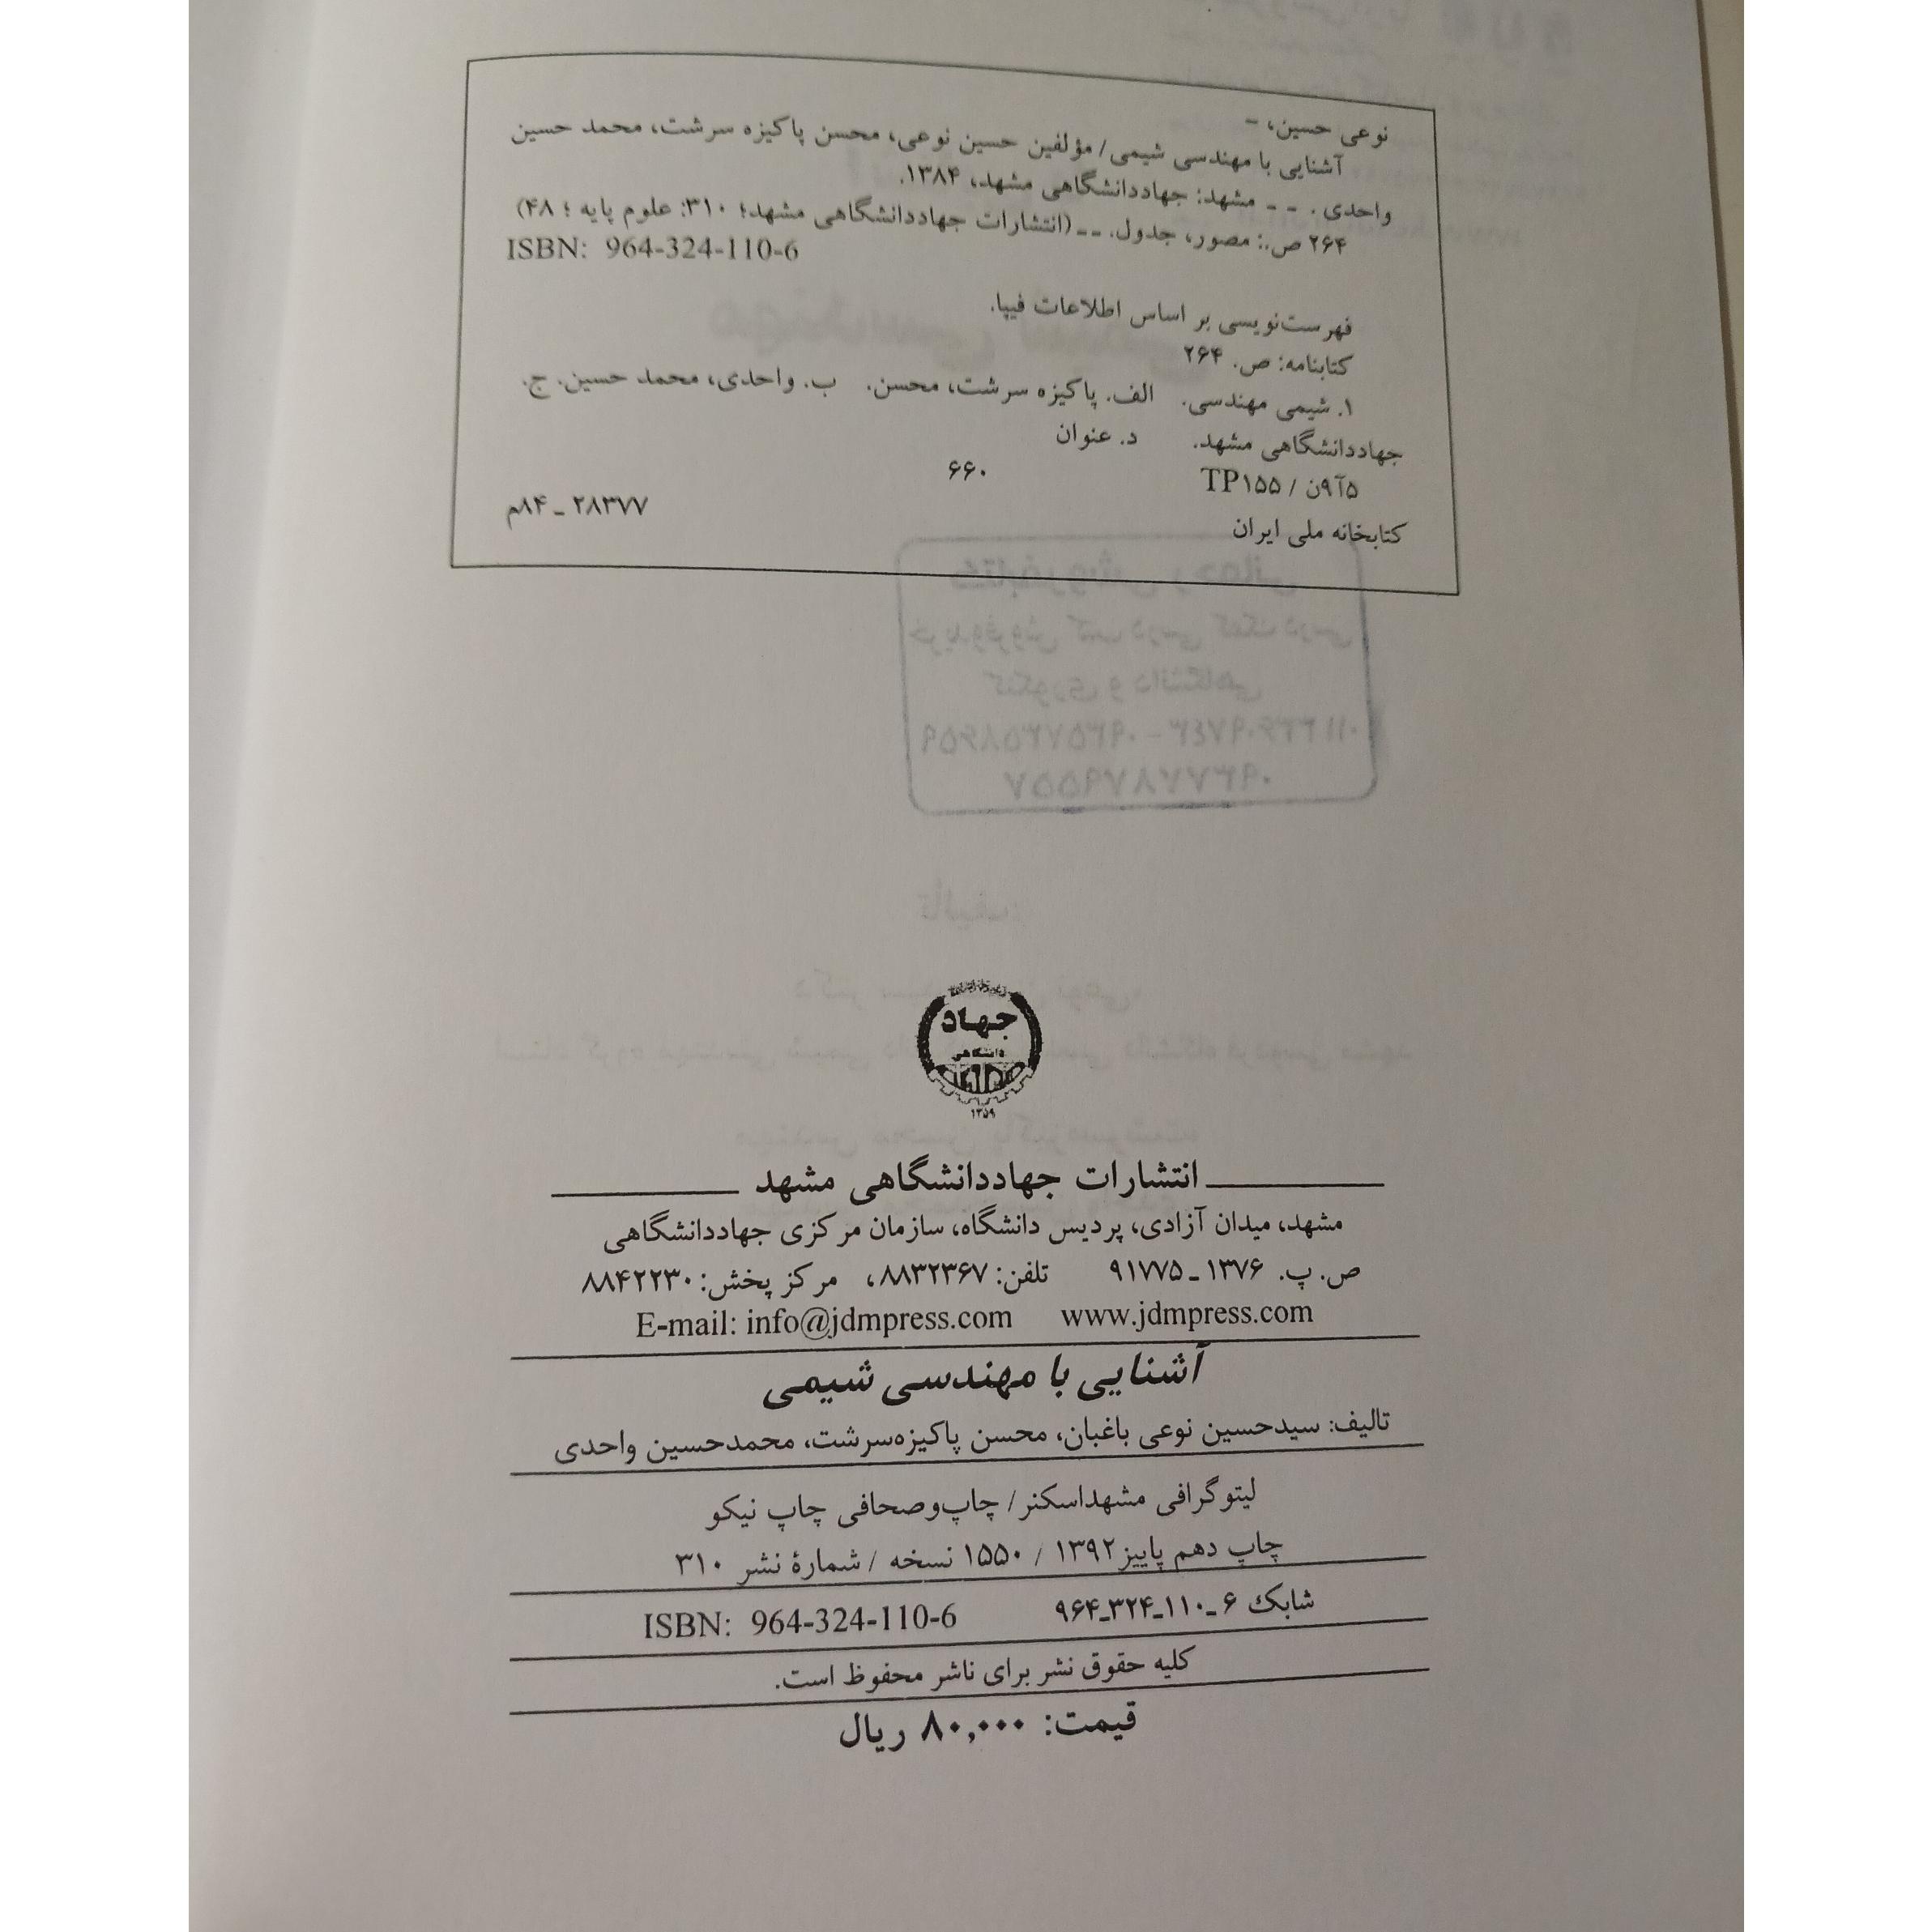 نوعی حسین، -
آشنایی با مهندسی شیمی/ مؤلفین حسین نوعی، محسن پاکیزه سرشت، محمد حسین
واحدی. -- مشهد: جهاددانشگاهی مشهد، ۱۳۸۴.
۲۶۴ ص.: مصور، جدول. -- (انتشارات جهاددانشگاهی مشهد؛ ۳۱۰: علوم پایه ؛ ۴۸)
ISBN: 964-324-110-6
فهرست‌نویسی بر اساس اطلاعات فیپا.
کتابنامه: ص. ۲۶۴
۱. شیمی مهندسی. الف. پاکیزه سرشت، محسن. ب. واحدی، محمد حسین. ج.
جهاددانشگاهی مشهد. د. عنوان
۵آ۹ن / TP۱۵۵ ۶۶۰
کتابخانه ملی ایران ۲۸۳۷۷ ـ ۸۴م
جهاد
دانشگاهی
۱۳۵۹
انتشارات جهاددانشگاهی مشهد
مشهد، میدان آزادی، پردیس دانشگاه، سازمان مرکزی جهاددانشگاهی
ص. پ. ۱۳۷۶ ـ ۹۱۷۷۵ تلفن: ۸۸۳۲۳۶۷، مرکز پخش: ۸۸۴۲۲۳۰
E-mail: info@jdmpress.com www.jdmpress.com
آشنایی با مهندسی شیمی
تالیف: سیدحسین نوعی باغبان، محسن پاکیزه‌سرشت، محمدحسین واحدی
لیتوگرافی مشهداسکنر/ چاپ‌وصحافی چاپ نیکو
چاپ دهم پاییز۱۳۹۲ / ۱۵۵۰ نسخه / شمارۀ نشر ۳۱۰
شابک ۶ ـ۱۱۰ـ۳۲۴ـ۹۶۴ ISBN: 964-324-110-6
کلیه حقوق نشر برای ناشر محفوظ است.
قیمت: ۸۰,۰۰۰ ریال